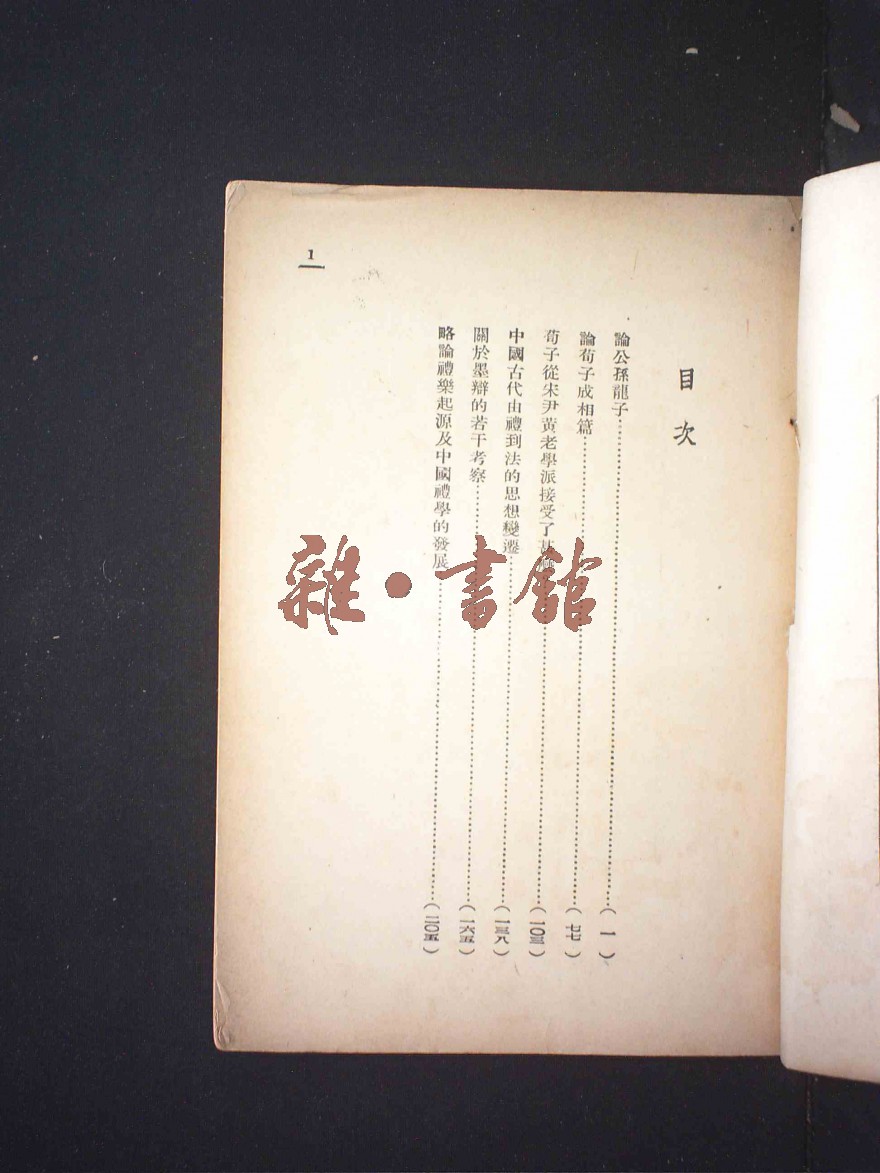 目次
論公孫龍子……（一）
論荀子成相篇……（七七）
荀子從宋尹黃老學派接受了甚麼……（一〇三）
中國古代由禮到法的思想變遷……（一三八）
關於墨辯的若干考察……（一六五）
略論禮樂起源及中國禮學的發展……（二〇五）
1
雜·書館